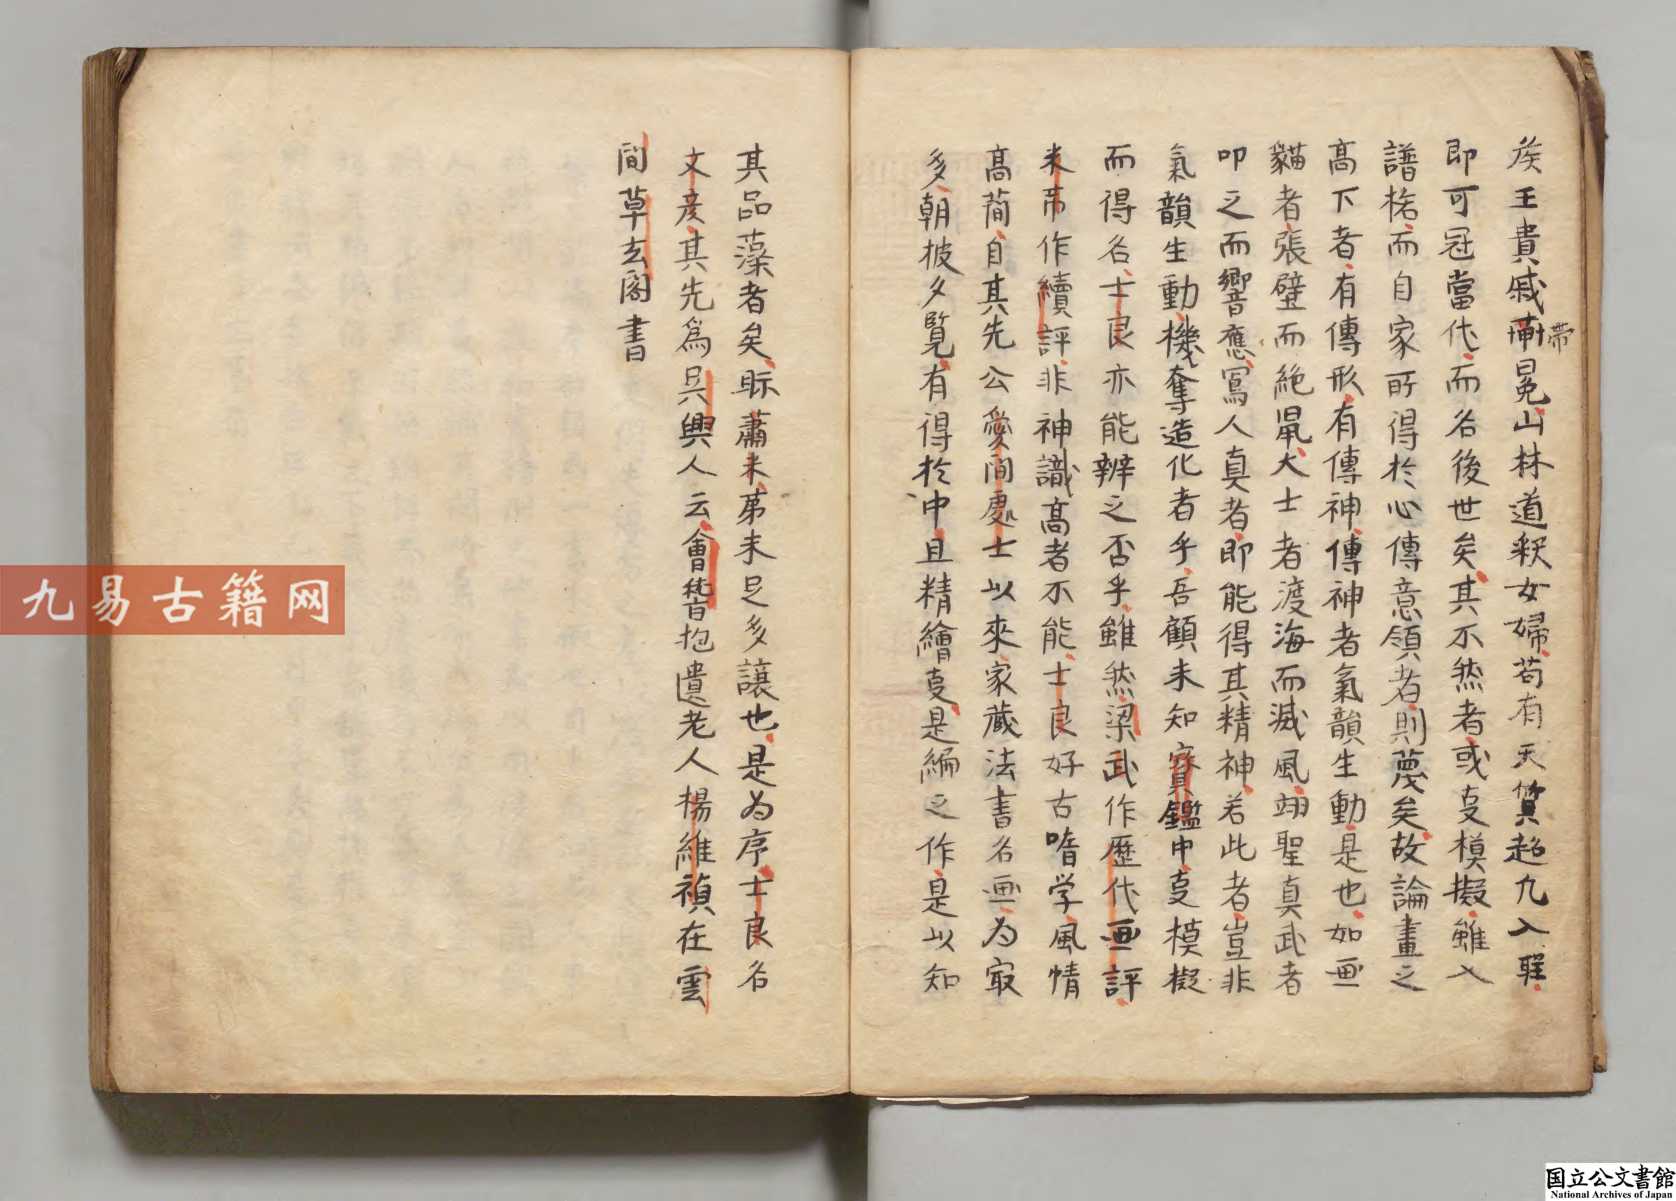 侯王貴戚軒冕山林道釈女婦苟有天質超凢入聖
帯
即可冠當代而名後世矣其不然者或㕝模擬雖入
譜格而自家所得於心傳意領者則蔑矣故論畫之
高下者有傳形有傳神傳神者氣韻生動是也如画
貓者張壁而絶鼠大士者渡海而滅風翊聖真武者
叩之而響應冩人真者即能得其精神若此者豈非
氣韻生動機奪造化者乎吾顧未知寳鑑中㕝模擬
而得名士良亦能辨之否乎雖然梁武作歴代画評
米芾作續評非神識高者不能士良好古嗜学風情
高簡自其先公愛閒處士以來家蔵法書名画為㝡
多朝披夕覧有得於中且精繪㕝是編之作是以知
其品藻者矣眎蕭米弟未足多讓也是為序士良名
文彦其先為吳興人云會稽抱遺老人楊維禎在雲
間草玄閣書
九易古籍网
国立公文書館
National Archives of Japan